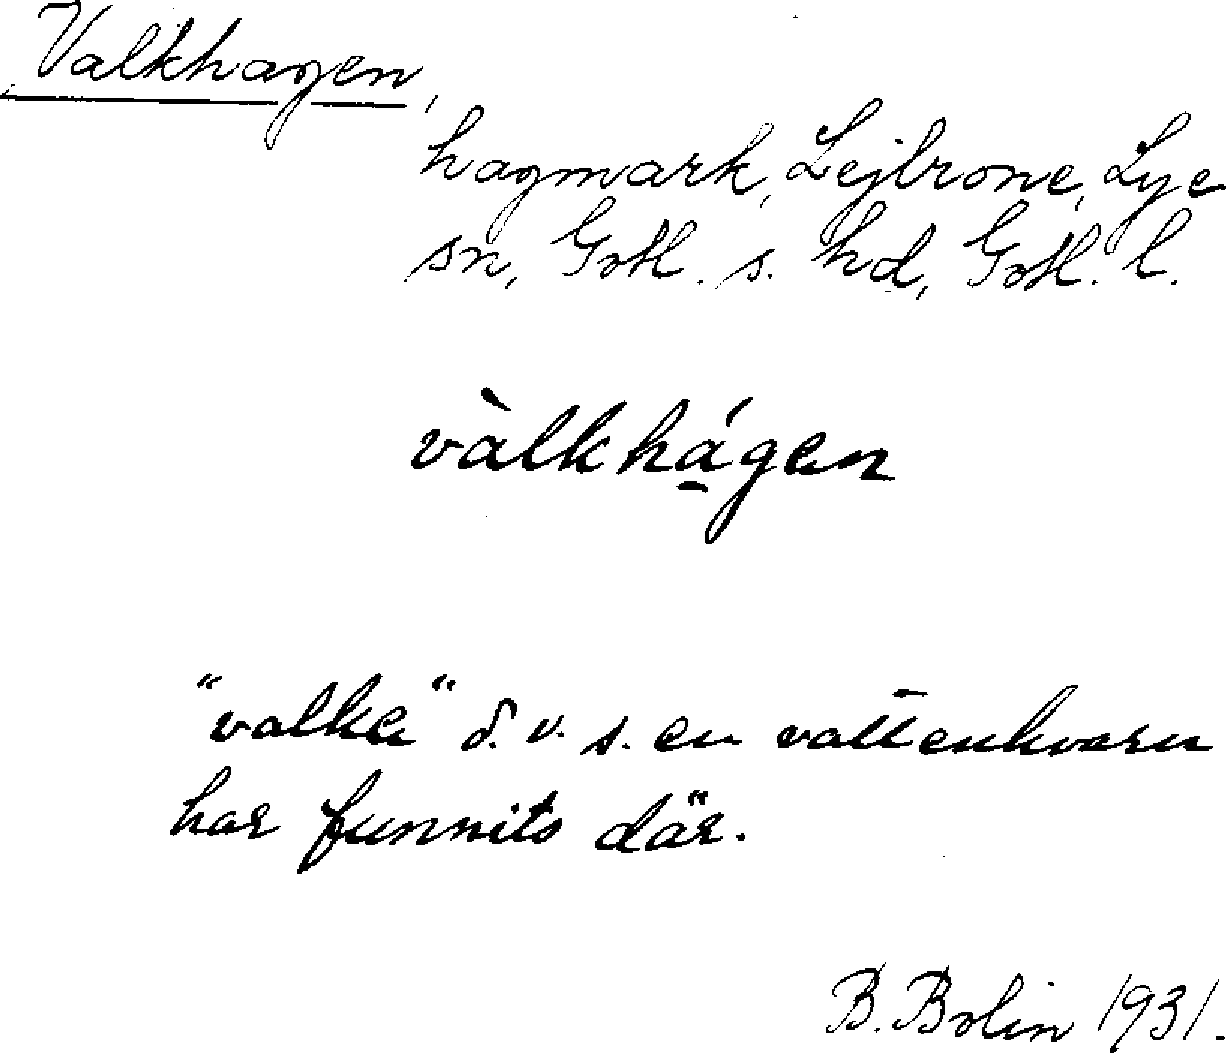 Valkhagen,
hagmark, Lejbrone, Lye
sn, Gotl. s. hd, Gotl. l.
vàlkhá̱gen
"valke" d. v. s. en vattenkvarn
har funnits där.
B. Bolin 1931.